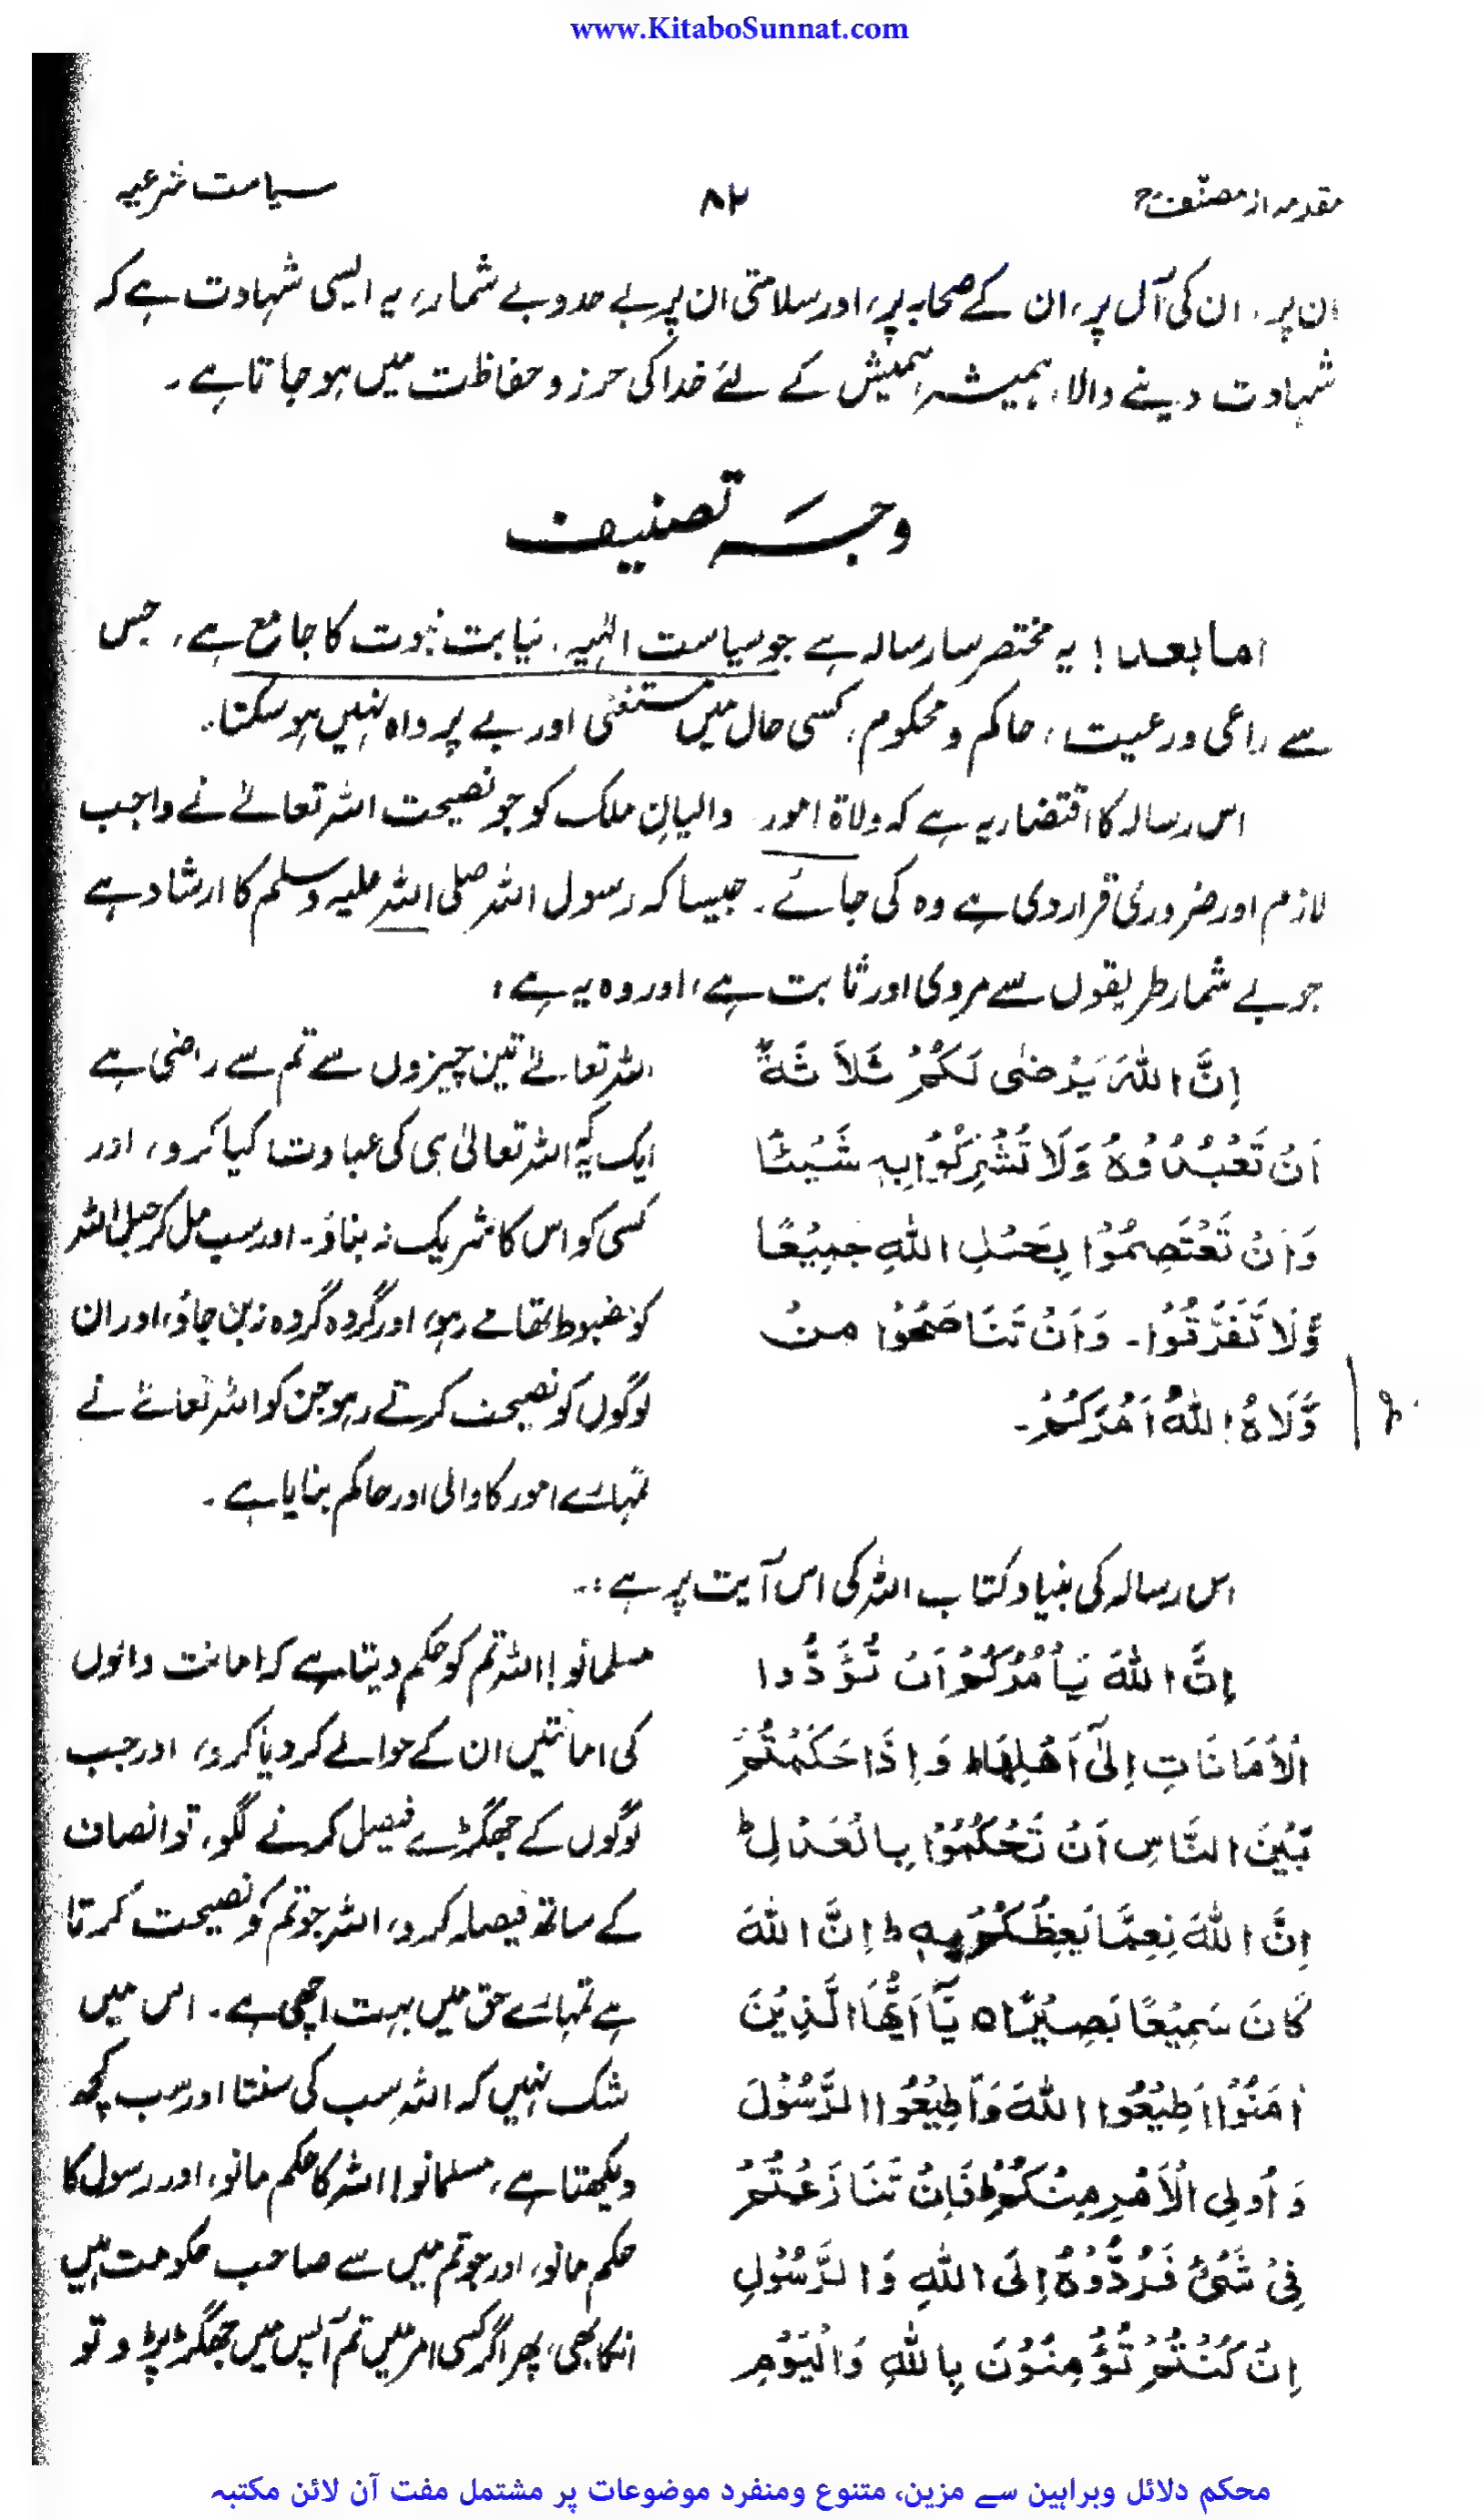 www.KitaboSunnat.com
مقدمہ از مصنفؒ
۸۲
سیاست شرعیہ
ان پر، ان کی آل پر، ان کے صحابہ پر، اور سلامتی ان پر بے حد و بے شمار، یہ ایسی شہادت ہے کہ
شہادت دینے والا، ہمیشہ ہمیش کے لئے خدا کی حرز و حفاظت میں ہو جاتا ہے۔
وجہ تصنیف
اما بعد! یہ مختصر سا رسالہ ہے جو سیاست الٰہیہ، نیابت نبوت کا جامع ہے، جس
سے راعی و رعیت، حاکم و محکوم، کسی حال میں مستغنی اور بے پرواہ نہیں ہو سکتا۔
اس رسالہ کا اقتضاء یہ ہے کہ ولاۃ امور والیانِ ملک کو جو نصیحت اللہ تعالےٰ نے واجب
لازم اور ضروری قرار دی ہے وہ کی جائے۔ جیسا کہ رسول اللہ صلی اللہ علیہ وسلم کا ارشاد ہے
جو بے شمار طریقوں سے مروی اور ثابت ہے، اور وہ یہ ہے،
اِنَّ اللّٰهَ يَرْضٰى لَكُمْ ثَلَاثَةً
اَنْ تَعْبُدُوْهُ وَلَا تُشْرِكُوْا بِهٖ شَيْئًا
وَاَنْ تَعْتَصِمُوْا بِحَبْلِ اللّٰهِ جَمِيْعًا
وَّلَا تَفَرَّقُوْا۔ وَاَنْ تَنَاصَحُوْا مَنْ
وَّلَّاهُ اللّٰهُ اَمْرَكُمْ۔
اللہ تعالےٰ تین چیزوں سے تم سے راضی ہے
ایک یہ کہ اللہ تعالیٰ ہی کی عبادت کیا کرو، اور
کسی کو اس کا شریک نہ بناؤ۔ اور سب مل کر حبل اللہ
کو مضبوط تھامے رہو، اور گروہ گروہ نہ بن جاؤ، اور ان
لوگوں کو نصیحت کرتے رہو جن کو اللہ تعالےٰ نے
تمہارے امور کا والی اور حاکم بنایا ہے۔
اس رسالہ کی بنیاد کتاب اللہ کی اس آیت پر ہے:۔
اِنَّ اللّٰهَ يَاْمُرُكُمْ اَنْ تُؤَدُّوا
الْاَمَانَاتِ اِلٰٓى اَهْلِهَا ط وَ اِذَا حَكَمْتُمْ
بَيْنَ النَّاسِ اَنْ تَحْكُمُوْا بِالْعَدْلِ ط
اِنَّ اللّٰهَ نِعِمَّا يَعِظُكُمْ بِهٖ ط اِنَّ اللّٰهَ
كَانَ سَمِيْعًا بَصِيْرًا ه يٰٓاَ اَيُّهَا الَّذِيْنَ
اٰمَنُوْا اَطِيْعُوا اللّٰهَ وَ اَطِيْعُوا الرَّسُوْلَ
وَ اُولِى الْاَمْرِ مِنْكُمْ ط فَاِنْ تَنَازَعْتُمْ
فِىْ شَىْءٍ فَرُدُّوْهُ اِلَى اللّٰهِ وَ الرَّسُوْلِ
اِنْ كُنْتُمْ تُؤْمِنُوْنَ بِاللّٰهِ وَ الْيَوْمِ
مسلمانو! اللہ تم کو حکم دیتا ہے کہ امانت والوں
کی امانتیں ان کے حوالے کر دیا کرو، اور جب
لوگوں کے جھگڑے فیصل کرنے لگو، تو انصاف
کے ساتھ فیصلہ کرو، اللہ جو تم کو نصیحت کرتا
ہے تمہارے حق میں بہت اچھی ہے۔ اس میں
شک نہیں کہ اللہ سب کی سنتا اور سب کچھ
دیکھتا ہے، مسلمانو! اللہ کا حکم مانو، اور رسول کا
حکم مانو، اور جو تم میں سے صاحب حکومت ہیں
انکا بھی، پھر اگر کسی امر میں تم آپس میں جھگڑ پڑو تو
محکم دلائل وبراہین سے مزین، متنوع ومنفرد موضوعات پر مشتمل مفت آن لائن مکتبہ